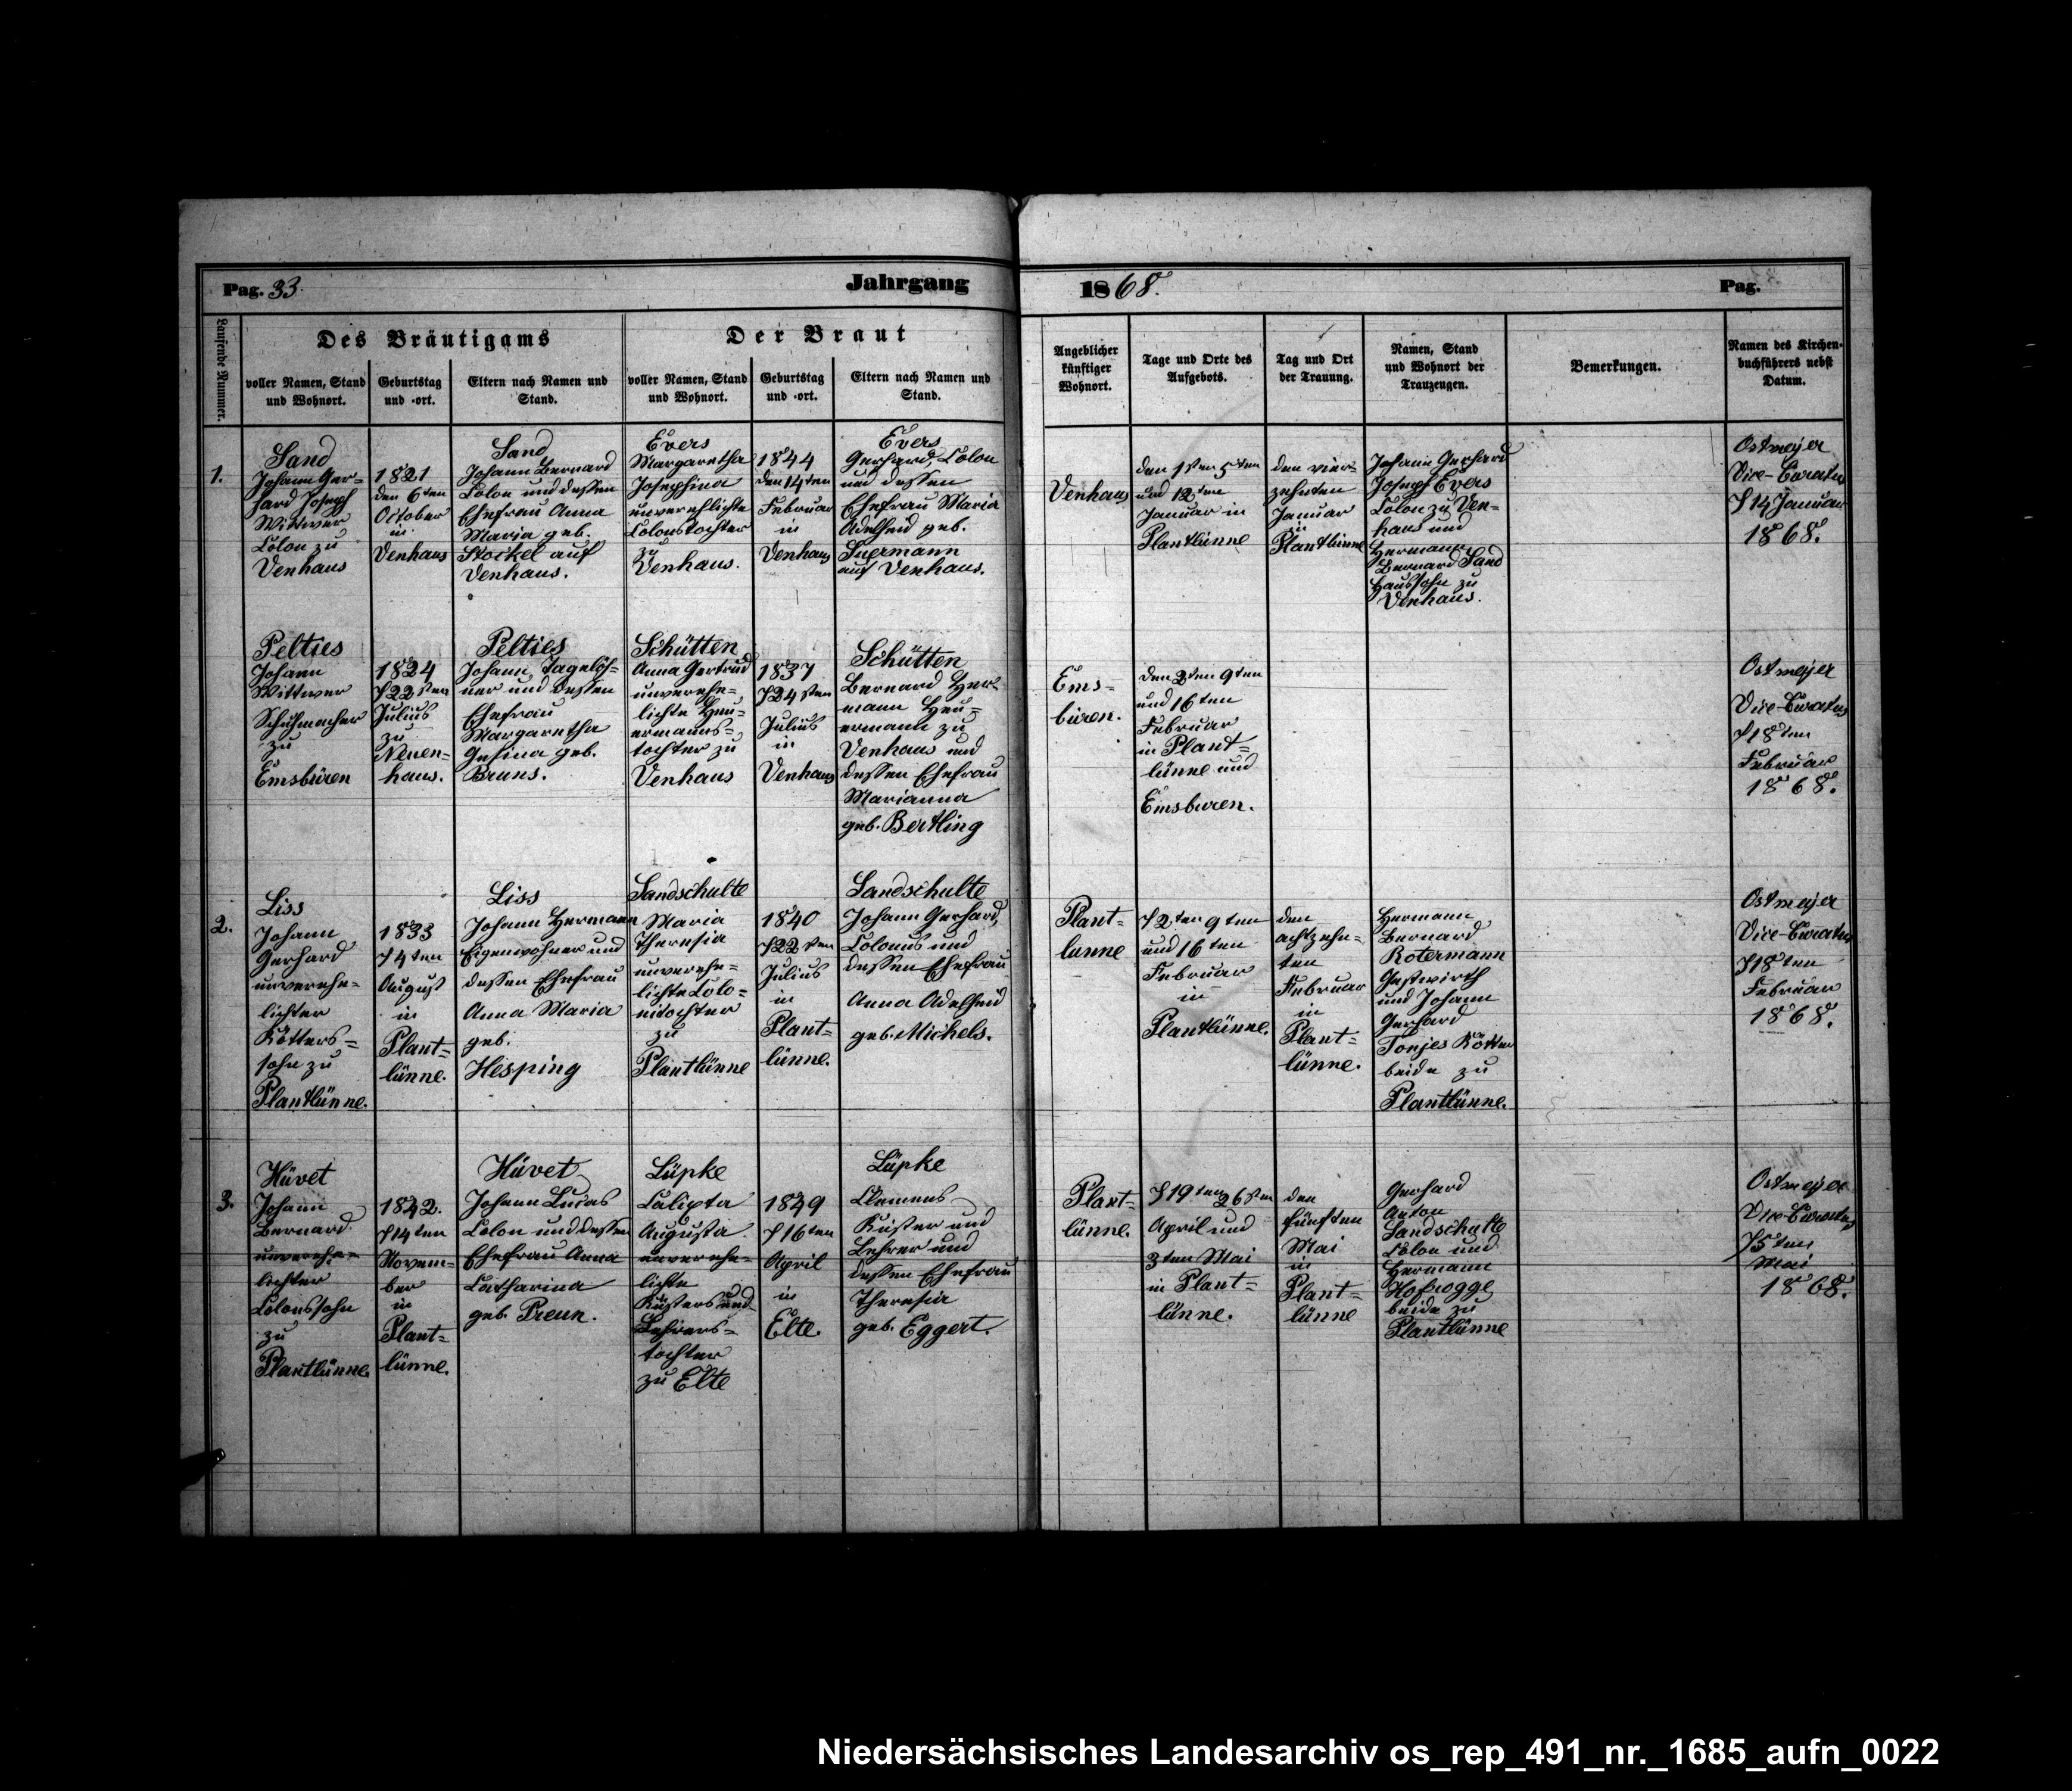 Pag. 33. Jahrgang
1868. Pag.
Laufende Nummer.
Des Bräutigams
Der Braut
voller Namen, Stand
und Wohnort.
Geburtstag
und -ort.
Eltern nach Namen und
Stand.
voller Namen, Stand
und Wohnort.
Geburtstag
und -ort.
Eltern nach Namen und
Stand.
Angeblicher
künftiger
Wohnort.
Tage und Orte des
Aufgebots.
Tag und Ort
der Trauung.
Namen, Stand
und Wohnort der
Trauzeugen.
Bemerkungen.
Namen des Kirchen-
buchführers nebst
Datum.
1.
Sand
Johann Ger-
hard Joseph
Wittwer
Colon zu
Venhaus
1821
den 6ten
October
in
Venhaus
Sand
Johann Bernard
Colon und dessen
Ehefrau Anna
Maria geb.
Stockel auf
Venhaus.
Evers
Margaretha
Josephina
unverehlichte
Colonstochter
zu
Venhaus.
1844
den 14ten
Februar
in
Venhaus
Evers
Gerhard, Colon
und dessen
Ehefrau Maria
Adelheid geb.
Suermann
auf Venhaus.
Venhaus
den 1sten 5ten
und 12ten
Januar in
Plantlünne
den vier-
zehnten
Januar
in
Plantlünne
Johann Gerhard
Joseph Evers
Colon zu Ven-
haus und
Hermann
Bernard Sand
Haussohn zu
Venhaus.
Ostmejer
Vice-Curatus
d 14 Januar
1868.
Pelties
Johann
Wittwer
Schuhmacher
zu
Emsbüren
1824
d 22sten
Julius
zu
Neuen-
haus.
Pelties
Johann, Tagelöh-
ner und dessen
Ehefrau
Margaretha
Gesina geb.
Bruns.
Schütten
Anna Gertrud
unverehe-
lichte Heu-
ermanns-
tochter zu
Venhaus
1837
d 24sten
Julius
in
Venhaus
Schütten
Bernard Her-
mann Heu-
ermann zu
Venhaus und
dessen Ehefrau
Marianna
geb. Bertling
Ems-
büren.
den 2ten 9ten
und 16ten
Februar
in Plant-
lünne und
Emsburen.
Ostmejer
Vice-Curatus
d 18ten
Februar
1868.
2.
Liss
Johann
Gerhard
unverehe-
lichter
Kötters-
sohn zu
Plantlünne.
1833
d 4ten
August
in
Plant-
lünne.
Liss
Johann Hermann
Eigenwohner und
dessen Ehefrau
Anna Maria
geb.
Hesping
Sandschulte
Maria
Theresia
unverehe-
lichte Colo-
nitochter
zu
Plantlünne
1840
d 22sten
Julius
in
Plant-
lünne.
Sandschulte
Johann Gerhard,
Colonus und
dessen Ehefrau
Anna Adelheid
geb. Michels.
Plant-
lünne
d 2ten 9ten
und 16ten
Februar
in
Plantlünne.
den
achtzehn-
ten
Februar
in
Plant-
lünne.
Hermann
Bernard
Rotermann
Gastwirth
und Johann
Gerhard
Tonjes Kötter
beide zu
Plantlünne.
Ostmejer
Vice-Curatus
d 18ten
Februar
1868.
3.
Hüvet
Johann
Bernard
unverehe-
lichter
Colonssohn
zu
Plantlünne.
1842.
d 14ten
Novem-
ber
in
Plant-
lünne.
Hüvet
Johann Lucas
Colon und dessen
Ehefrau Anna
Catharina
geb. Preun.
Lüpke
Calixta
Augusta
unverehe-
lichte
Küsters und
Lehrers-
tochter
zu Elte
1849
d 16ten
April
in
Elte.
Lüpke
Clemens
Küster und
Lehrer und
dessen Ehefrau
Theresia
geb. Eggert.
Plant-
lünne.
d 19ten 26sten
April und
3ten Mai
in Plant-
lünne.
den
fünften
Mai
in
Plant-
lünne
Gerhard
Anton
Sandschulte
Colon und
Hermann
Hofrogge
beide zu
Plantlünne
Ostmejer
Vice-Curatus
d 5ten
Mai
1868.
Niedersächsisches Landesarchiv os_rep_491_nr._1685_aufn_0022